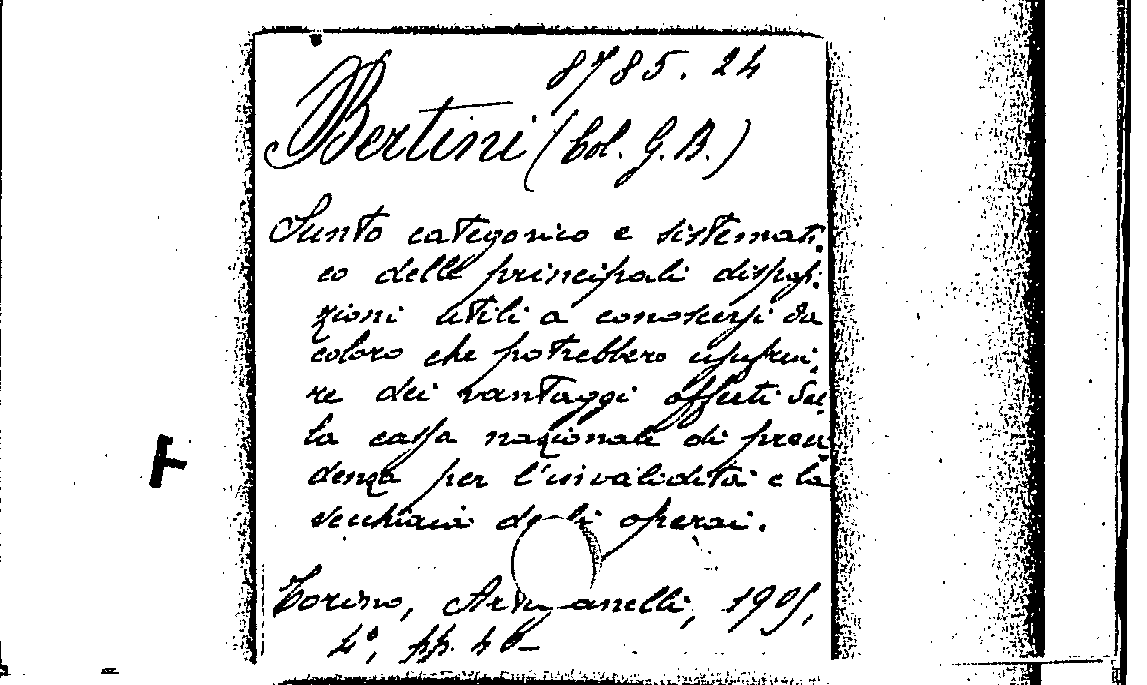 8785.24
Bertini (Col. G. B.)
Sunto categorico e sistemati-
co delle principali disposi-
zioni utili a conoscersi da
coloro che potrebbero usufrui-
re dei vantaggi offerti dal-
la cassa nazionale di previ-
denza per l'invalidità e la
vecchiaia degli operai.
Torino, 1905,
4°, pp. 46-